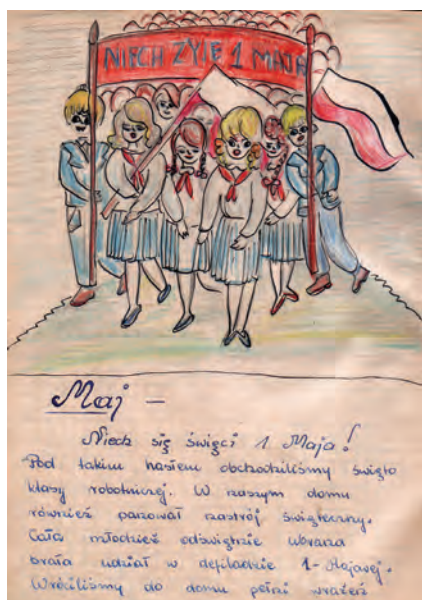 NIECH ŻYJE 1 MAJA
Maj –
Niech się święci 1 Maja!
Pod takim hasłem obchodziliśmy święto
klasy robotniczej. W naszym domu
również panował nastrój świąteczny.
Cała młodzież odświętnie ubrana
brała udział w defiladzie 1-Majowej.
Wróciliśmy do domu pełni wrażeń